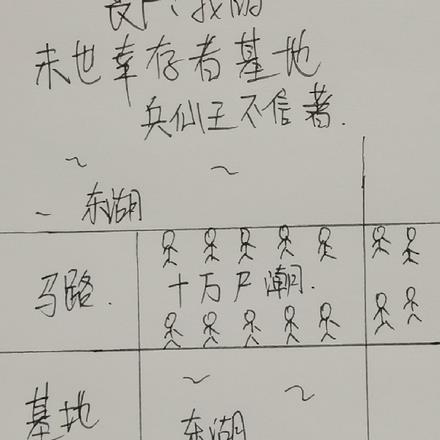 丧尸:我的
末世幸存者基地
兵仙王不信 著.
东湖
马路.
十万尸潮.
基地
东湖